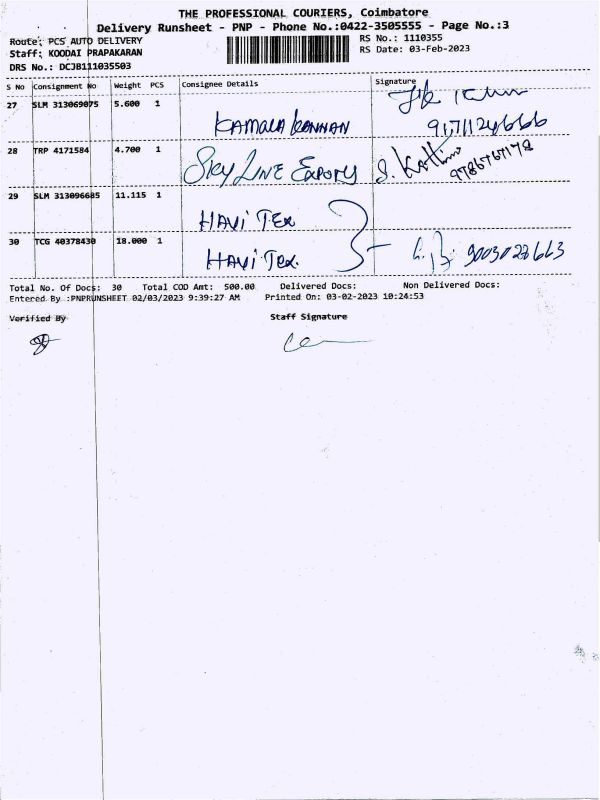 THE PROFESSIONAL COURIERS, Coimbatore
Delivery Runsheet - PNP - Phone No.:0422-3505555 - Page No.:3
Route: PCS AUTO DELIVERY
RS No.: 1110355
Staff: KOODAI PRAPAKARAN
RS Date: 03-Feb-2023
DRS No.: DCJB111035503
S No Consignment No Weight PCS Consignee Details Signature
27 SLM 313069075 5.600 1 KAMALA KANNAN
28 TRP 4171584 4.700 1 SKY LINE EXPORTS S. 9786767178
29 SLM 313096685 11.115 1 HAVI TEX
30 TCG 40378430 18.000 1 HAVI TEX.
Total No. Of Docs: 30 Total COD Amt: 500.00 Delivered Docs: Non Delivered Docs:
Entered By :PNPRUNSHEET 02/03/2023 9:39:27 AM Printed On: 03-02-2023 10:24:53
Verified By Staff Signature